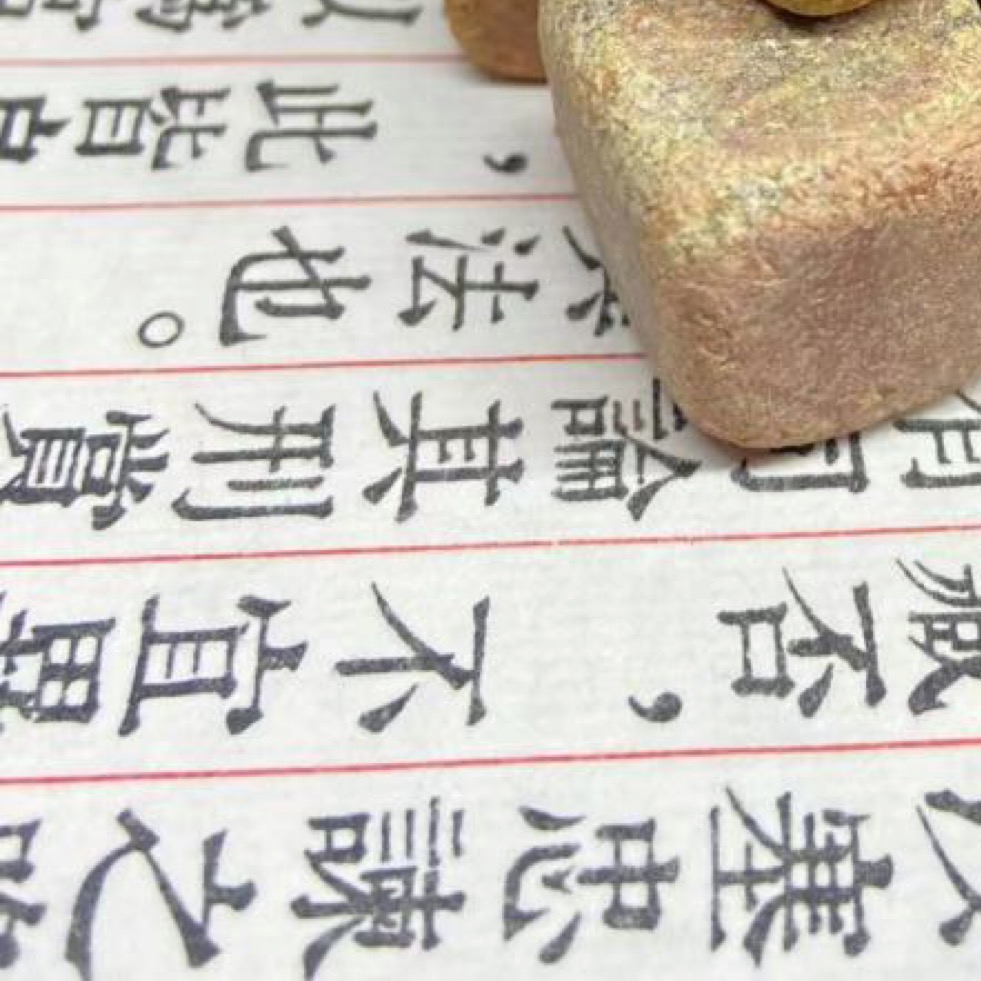 塞忠諫之
臧否，不宜異
有司論其刑賞
法也。
，此皆